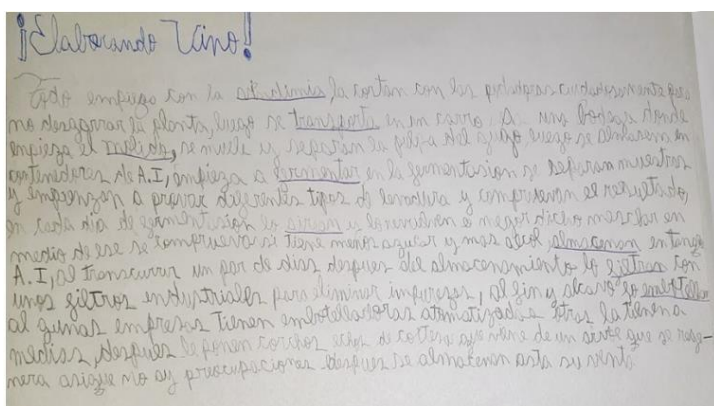 ¡Elaborando Vino!
Todo empieza con la vendimia, la cortan con las cuidadosamente para
no desgarrar la planta, luego se transporta en un carro A una bodega donde
empieza el molido, se muele y separan la del jugo, luego se almasena en
contenedores de A.I, empieza a fermentar en la fermentasion se separan muestras
y empienzan a provar diferentes tipos de levadura y compruevan el resultado,
en cada dia de fermentasion lo y lo o mejor dicho mesclar en
medio de ese se compruevo si tiene menos azucar y mas alcol, almasenan en tanqe
A.I, al transcurrir un par de dias despues del almacenamiento lo filtran con
unos filtros industriales para eliminar impuresas, al fin y alcavo lo embotellan
algunas empresas tienen embotelladoras otras la tienen a
medias, despues le ponen corchos echos de cortesa qe viene de un que se rege-
nera asiqe no ay preocupaciones despues se almacenan asta su venta